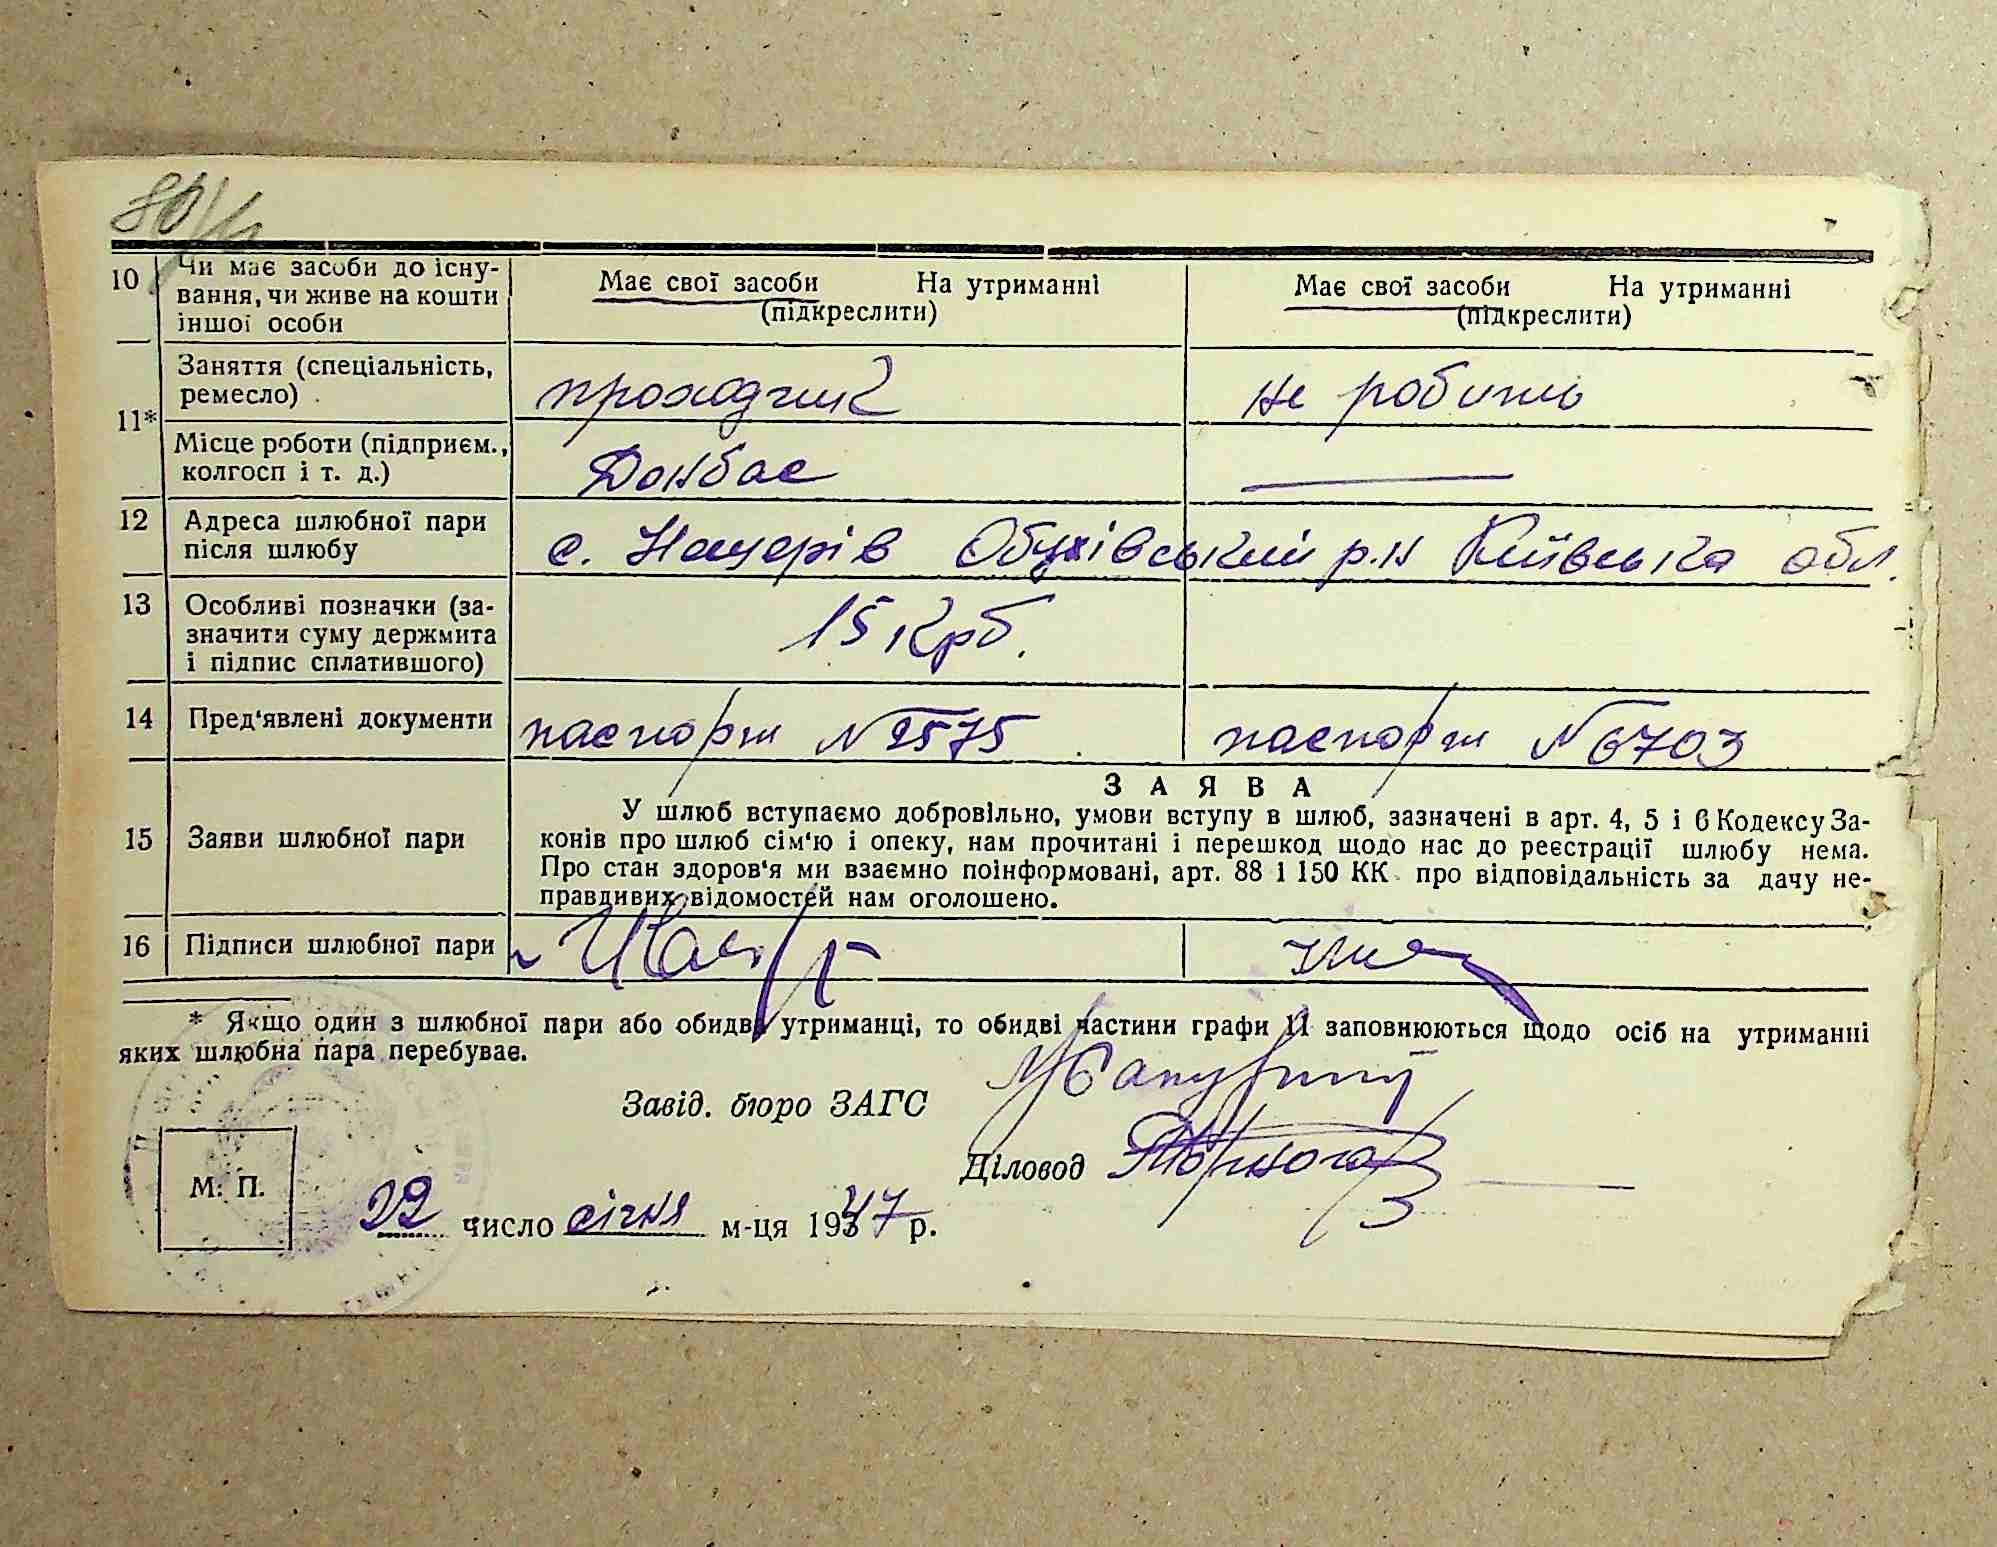 10 Чи має засоби до існу-
вання, чи живе на кошти
іншої особи
Має свої засоби На утриманні
(підкреслити)
Має свої засоби На утриманні
(підкреслити)
11*
Заняття (спеціальність,
ремесло)
проходчик
не робить
Місце роботи (підприєм.,
колгосп і т. д.)
Донбас
12 Адреса шлюбної пари
після шлюбу
с. Нещерів Обухівський р.н Київська обл.
13 Особливі позначки (за-
значити суму держмита
і підпис сплатившого)
15 крб.
14 Пред'явлені документи
паспорт № 2575
паспорт № 6703
15 Заяви шлюбної пари
ЗАЯВА
У шлюб вступаємо добровільно, умови вступу в шлюб, зазначені в арт. 4, 5 і 6 Кодексу За-
конів про шлюб сім'ю і опеку, нам прочитані і перешкод щодо нас до реєстрації шлюбу нема.
Про стан здоров'я ми взаємно поінформовані, арт. 88 і 150 КК про відповідальність за дачу не-
правдивих відомостей нам оголошено.
16 Підписи шлюбної пари
* Якщо один з шлюбної пари або обидва утриманці, то обидві частини графи 11 заповнюються щодо осіб на утриманні
яких шлюбна пара перебуває.
Завід. бюро ЗАГС
Діловод
М. П.
22 число січня м-ця 1947 р.